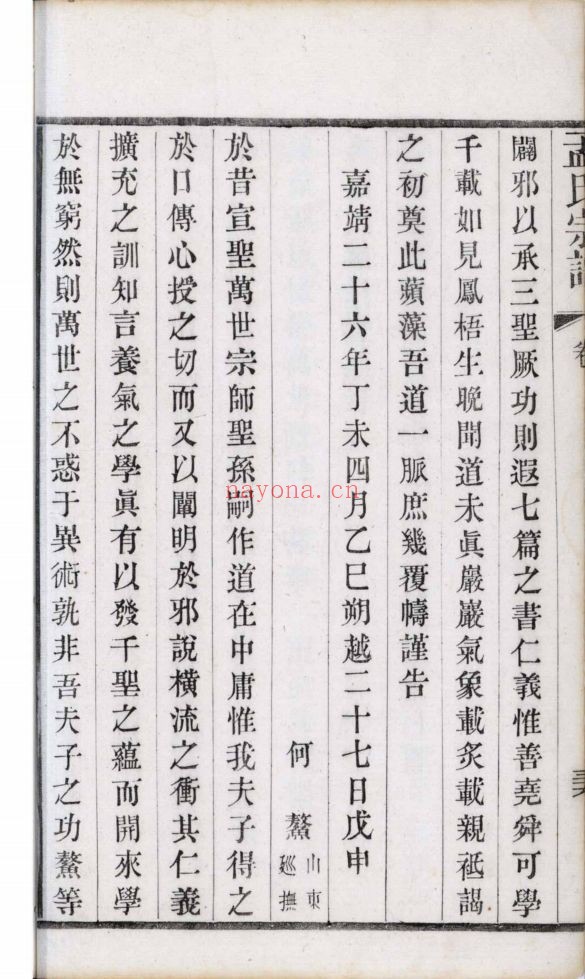 孟氏宗譜 卷
闢邪以承三聖厥功則遐七篇之書仁義惟善堯舜可學
千載如見鳳梧生晚聞道未眞巖巖氣象載炙載親祗謁
之初奠此蘋藻吾道一脈庶幾覆幬謹告
嘉靖二十六年丁未四月乙巳朔越二十七日戊申
何鰲山東廵撫
於昔宣聖萬世宗師聖孫嗣作道在中庸惟我夫子得之
於口傳心授之切而又以闡明於邪說橫流之衝其仁義
擴充之訓知言養氣之學眞有以發千聖之蘊而開來學
於無窮然則萬世之不惑于異術孰非吾夫子之功鰲等
nayona.cn